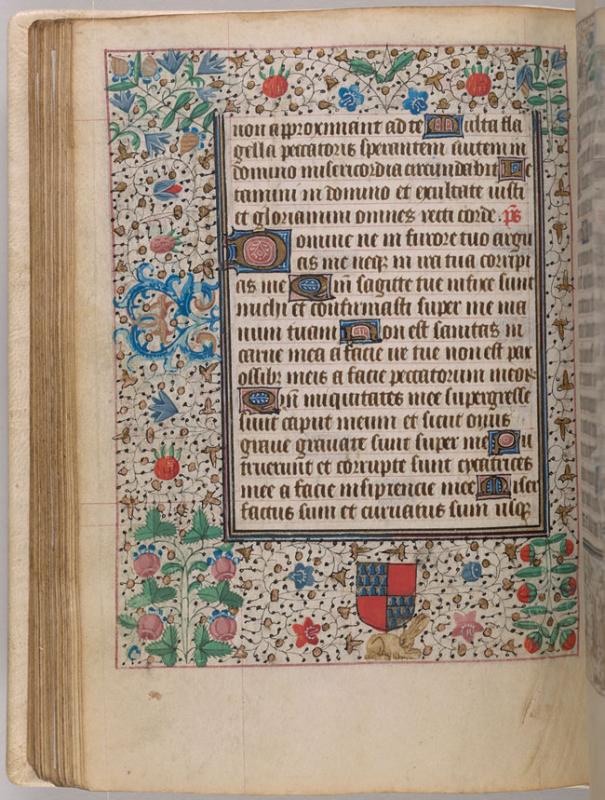 non approximant ad te Multa fla
gella peccatoris sperantem autem in
domino misericordia circundabit Le
tamini in domino et exultate iusti
et gloriamini omnes recti corde . ps
Domine ne in furore tuo argu
as me neq in ira tua corripi
as me Qm sagitte tue infixe sunt
michi et confirmasti super me ma
num tuam Non est sanitas in
carne mea a facie ire tue non est pax
ossib meis a facie peccatorum meor
Qm iniquitates mee supergresse
sunt caput meum et sicut onus
graue grauate sunt super me Pu
truerunt et corrupte sunt cycatrices
mee a facie insipiencie mee Miser
factus sum et curuatus sum usq